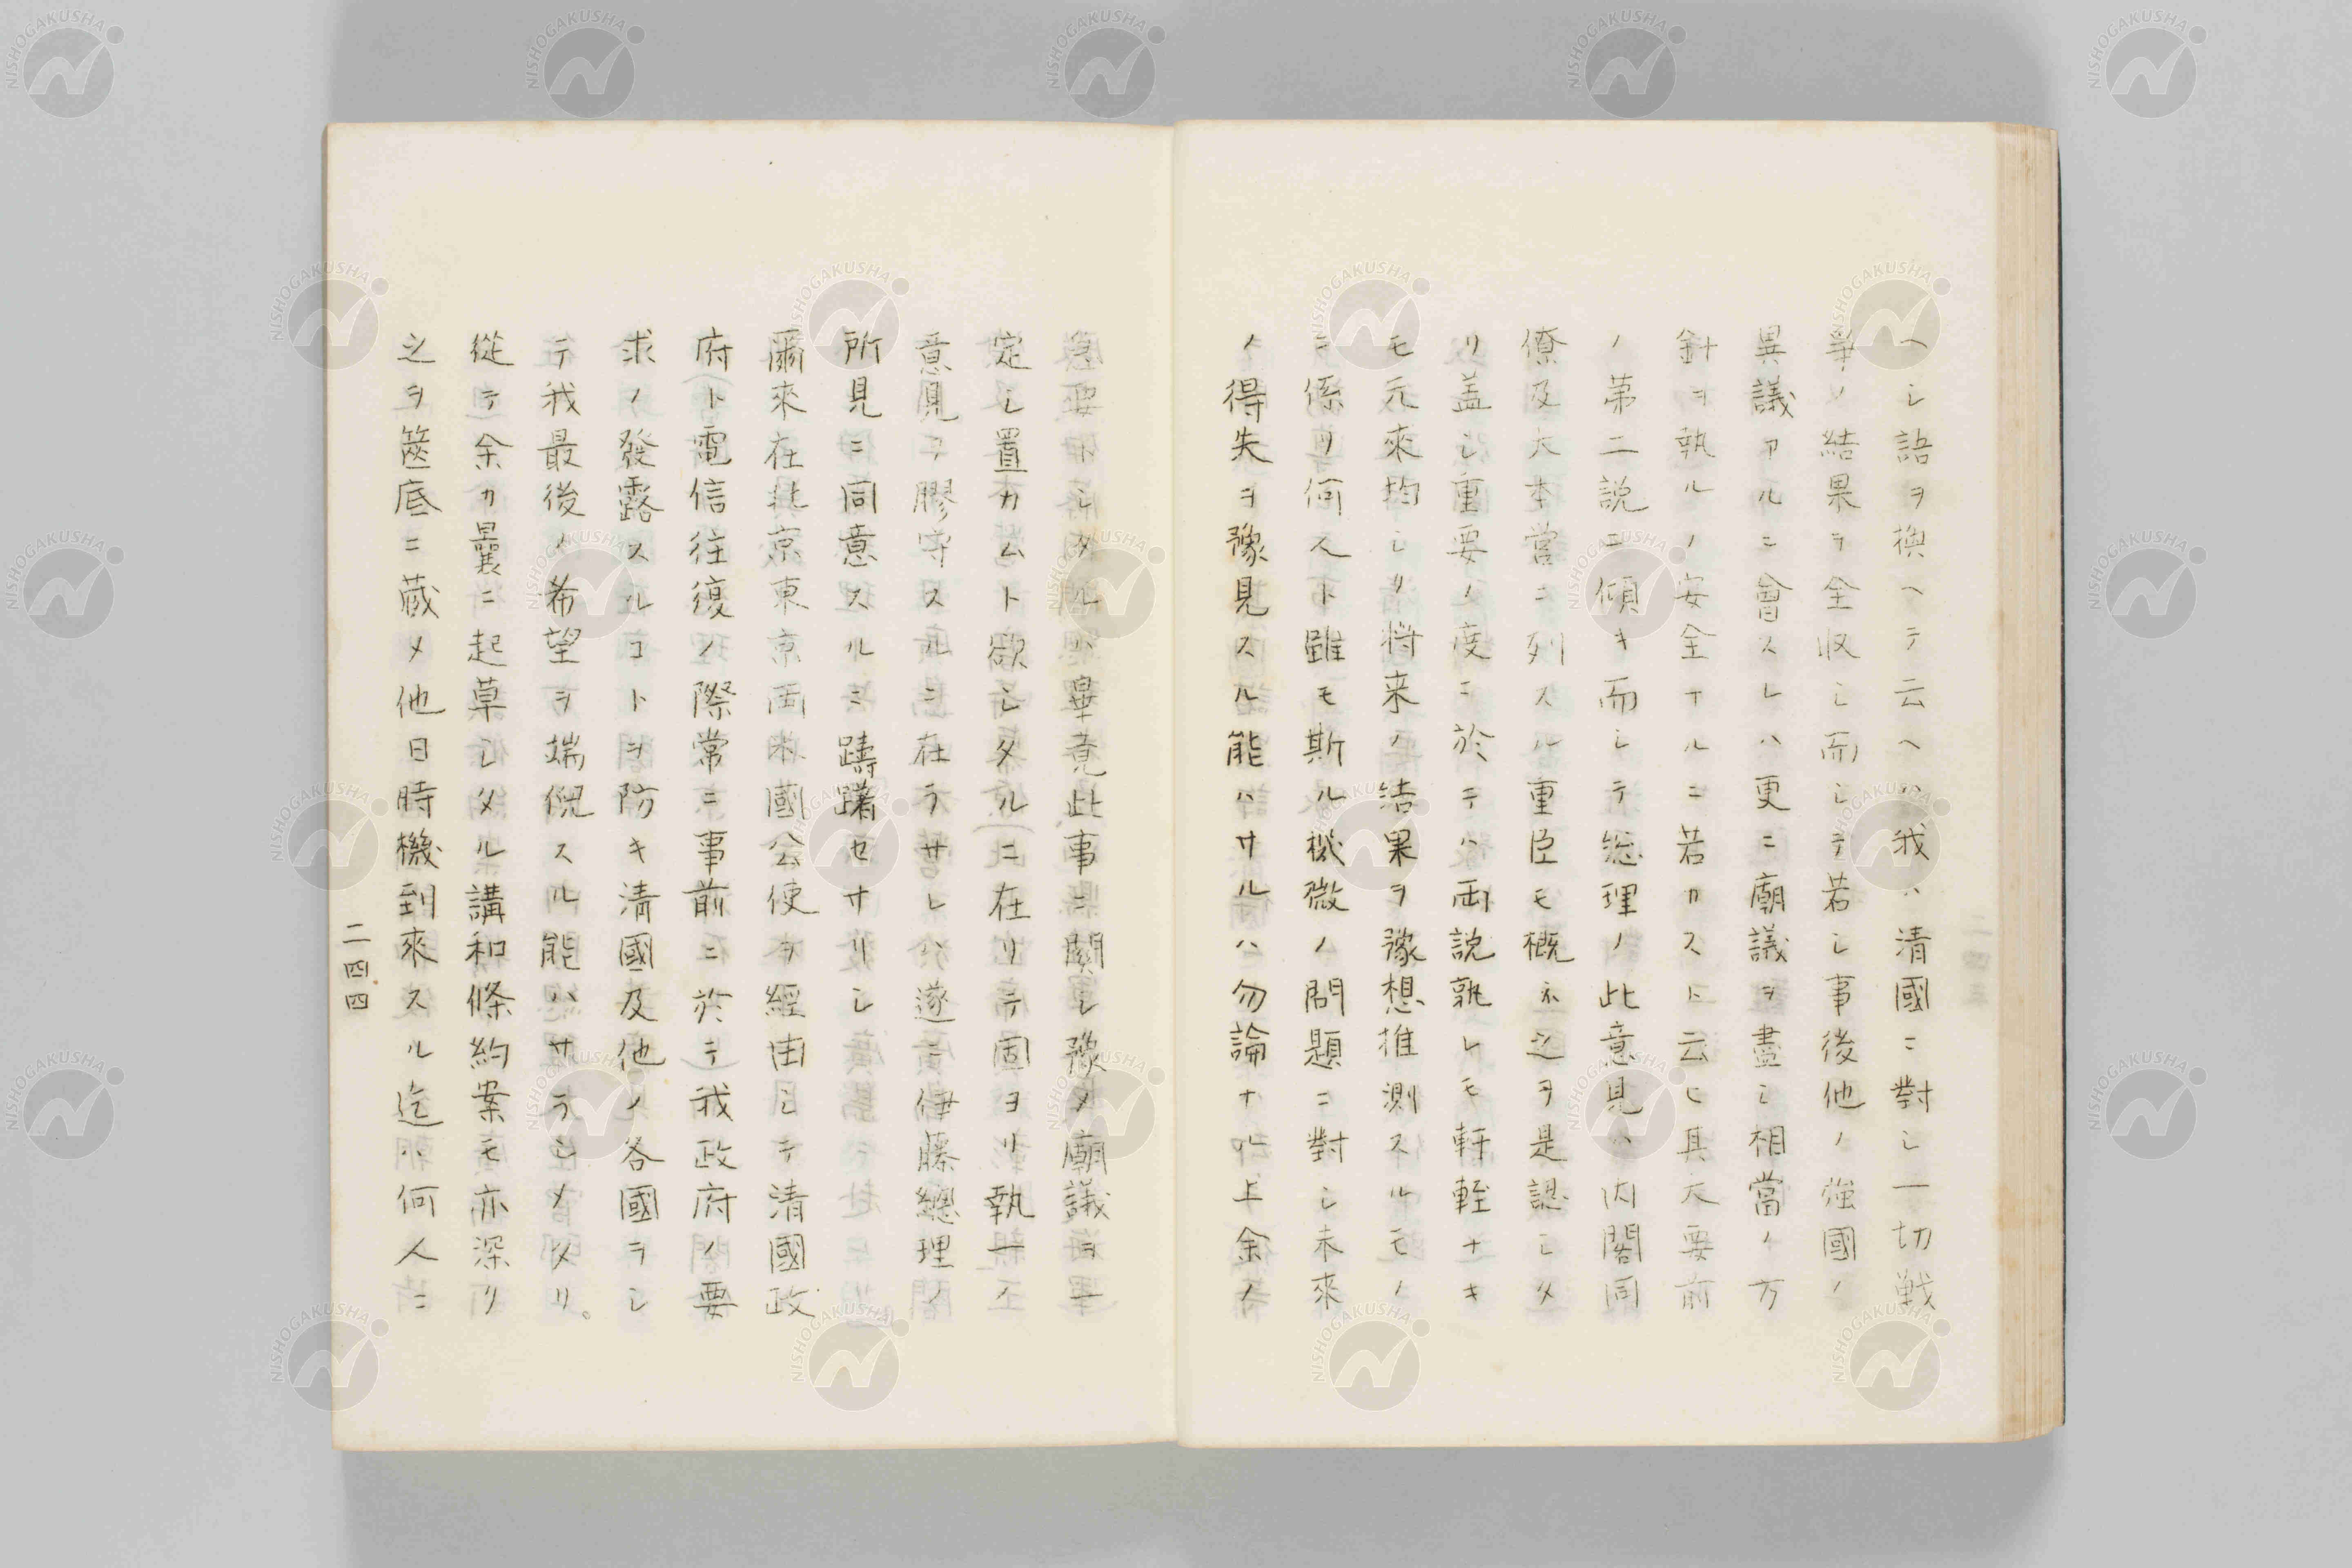 ヘシ語ヲ換ヘテ云ヘハ我ハ清國ニ對シ一切戦
争ノ結果ヲ全収シ而シテ若シ事後他ノ強國ノ
異議アルニ會スレハ更ニ廟議ヲ盡シ相當ノ方
針ヲ執ルノ安全ナルニ若カスト云ヒ其大要前
ノ第二説ニ傾キ而シテ総理ノ此意見ハ内閣同
僚及大本営ニ列スル重臣モ概ネ之ヲ是認シタ
リ盖シ重要ノ度ニ於テハ両説孰レモ軒輊ナキ
モ元來均シリ將来ノ結果ヲ豫想推測スルモノ
ニ係リ何人ト雖モ斯ル機微ノ問題ニ對シ未來
ノ得失ヲ豫見スル能ハサルハ勿論ナルモ余ノ
急要トシタルハ畢竟此事ニ関シ豫メ廟議ヲ一
定シ置カムト欲シタルニ在リテ固ヨリ執一ノ
意見ヲ膠守スルニ在ラサレハ遂ニ伊藤總理ノ
所見ニ同意スルニ躊躇セサリシ
爾來在北京東京両米國公使ヲ經由シテ清國政
府ト電信往復ノ際常ニ事前ニ於テ我政府ノ要
求ノ發露スルコトヲ防キ清國及他ノ各國ヲシ
テ我最後ノ希望ヲ端倪スル能ハサラシメタリ。
從テ余カ曩ニ起草シタル講和條約案モ亦深リ
之ヲ篋底ニ蔵メ他日時機到來スル迄ハ何人ニ
二四四
NISHOGAKUSHA